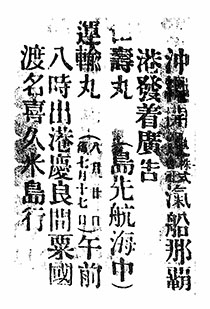 沖縄開運株式汽船那覇
港發着廣告
壽丸(島先航海中)
運輸丸(八月廿日舊七月十七日)午前
八時出港慶良間粟國
渡名喜久米島行